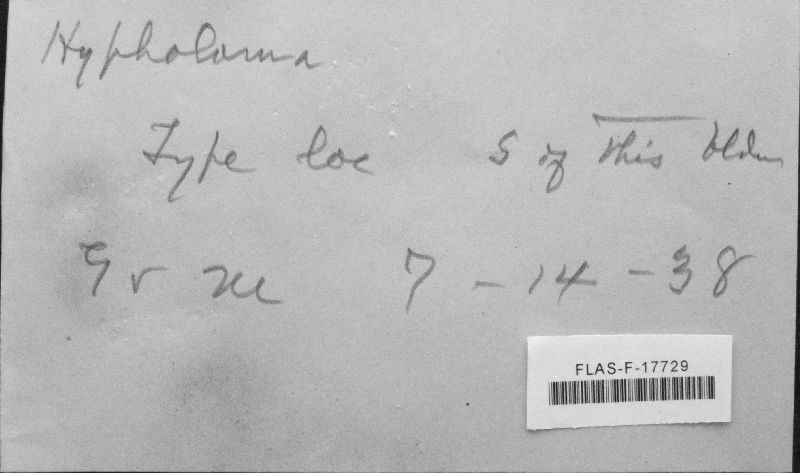 Hypholoma
Type loc S of This Bldn
7-14-38
FLAS-F-17729